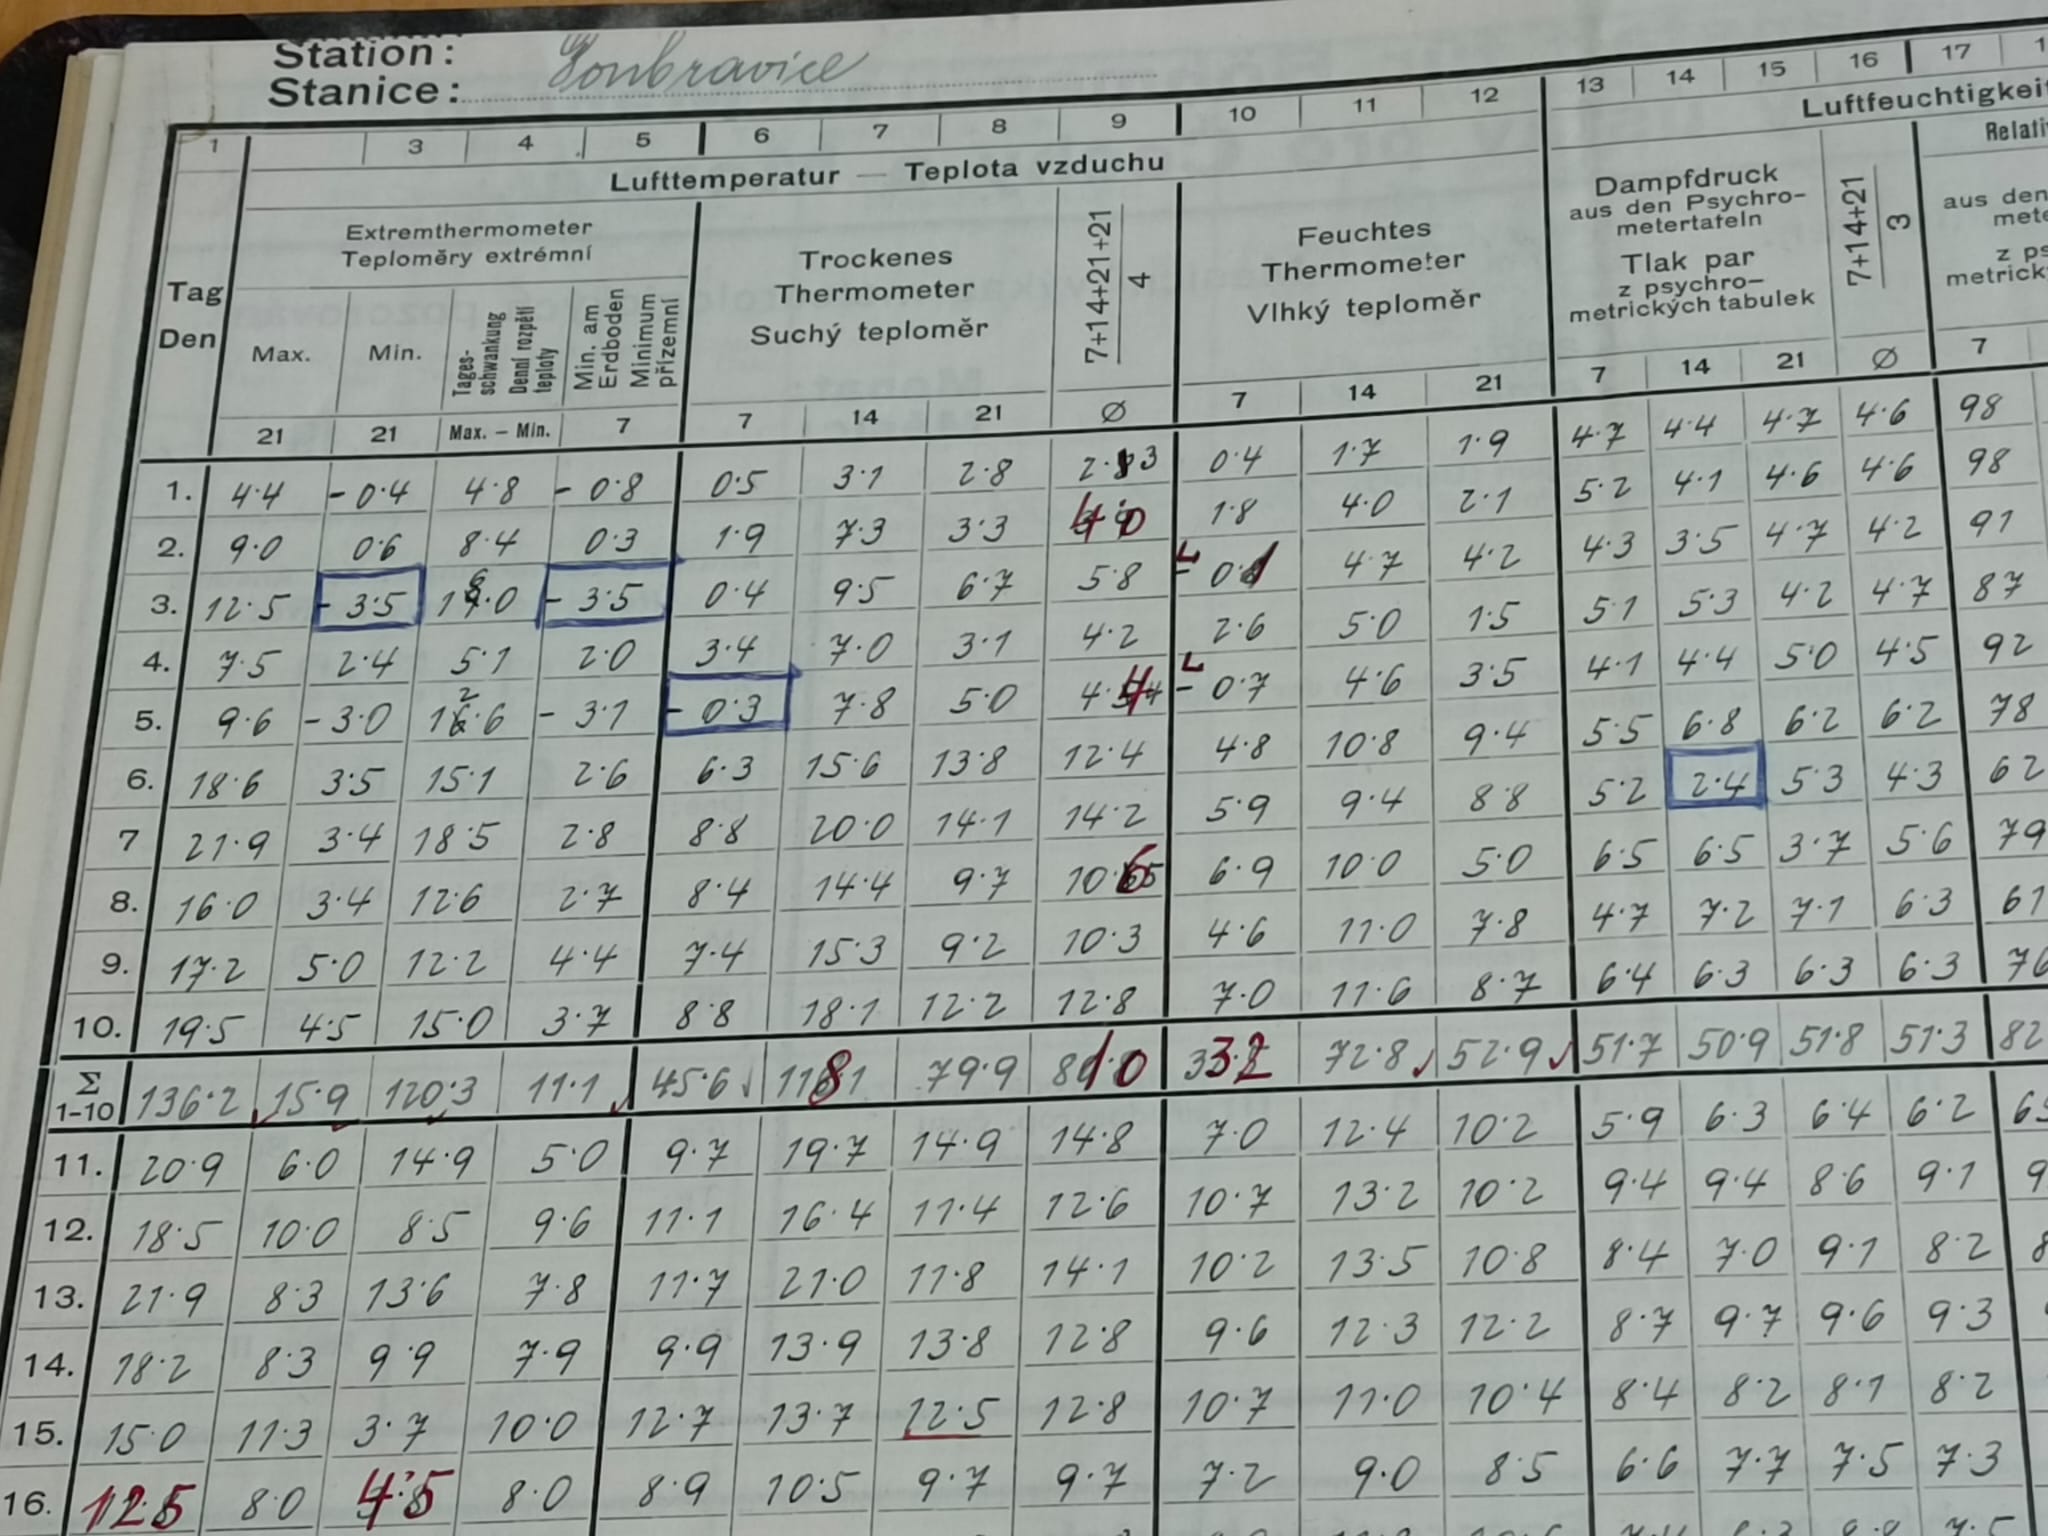 Station:
Stanice: Doubravice
1 3 4 5 6 7 8 9 10 11 12 13 14 15 16 17
Lufttemperatur — Teplota vzduchu
Luftfeuchtigkeit
Tag
Den
Extremthermometer
Teploměry extrémní
Max.
Min.
Tages-
schwankung
Denní rozpětí
teploty
Min. am
Erdboden
Minimum
přízemní
Trockenes
Thermometer
Suchý teploměr
7+14+21+21
4
Feuchtes
Thermometer
Vlhký teploměr
Dampfdruck
aus den Psychro-
metertafeln
Tlak par
z psychro-
metrických tabulek
7+14+21
3
21 21 Max. – Min. 7 7 14 21 Ø 7 14 21 7 14 21 Ø 7
1. 4·4 -0·4 4·8 -0·8 0·5 3·1 2·8 0·4 1·7 1·9 4·7 4·4 4·7 4·6 98
2. 9·0 0·6 8·4 0·3 1·9 7·3 3·3 4·0 1·8 4·0 2·1 5·2 4·1 4·6 4·6 98
3. 12·5 -3·5 16·0 -3·5 0·4 9·5 6·7 5·8 -0·1 4·7 4·2 4·3 3·5 4·7 4·2 91
4. 7·5 2·4 5·1 2·0 3·4 7·0 3·1 4·2 2·6 5·0 1·5 5·1 5·3 4·2 4·7 87
5. 9·6 -3·0 12·6 -3·1 -0·3 7·8 5·0 4·4 -0·7 4·6 3·5 4·1 4·4 5·0 4·5 92
6. 18·6 3·5 15·1 2·6 6·3 15·6 13·8 12·4 4·8 10·8 9·4 5·5 6·8 6·2 6·2 78
7 21·9 3·4 18·5 2·8 8·8 20·0 14·1 14·2 5·9 9·4 8·8 5·2 2·4 5·3 4·3 62
8. 16·0 3·4 12·6 2·7 8·4 14·4 9·7 10·6 6·9 10·0 5·0 6·5 6·5 3·7 5·6 79
9. 17·2 5·0 12·2 4·4 7·4 15·3 9·2 10·3 4·6 11·0 7·8 4·7 7·2 7·1 6·3 61
10. 19·5 4·5 15·0 3·7 8·8 18·1 12·2 12·8 7·0 11·6 8·7 6·4 6·3 6·3 6·3 76
Σ
1-10 136·2 15·9 120·3 11·1 45·6 118·1 79·9 72·8 52·9 51·7 50·9 51·8 51·3 82
11. 20·9 6·0 14·9 5·0 9·7 19·7 14·9 14·8 7·0 12·4 10·2 5·9 6·3 6·4 6·2
12. 18·5 10·0 8·5 9·6 11·1 16·4 11·4 12·6 10·7 13·2 10·2 9·4 9·4 8·6 9·1
13. 21·9 8·3 13·6 7·8 11·7 21·0 11·8 14·1 10·2 13·5 10·8 8·4 7·0 9·1 8·2
14. 18·2 8·3 9·9 7·9 9·9 13·9 13·8 12·8 9·6 12·3 12·2 8·7 9·7 9·6 9·3
15. 15·0 11·3 3·7 10·0 12·7 13·7 12·5 12·8 10·7 11·0 10·4 8·4 8·2 8·1 8·2
16. 12·5 8·0 4·5 8·0 8·9 10·5 9·7 9·7 7·2 9·0 8·5 6·6 7·7 7·5 7·3